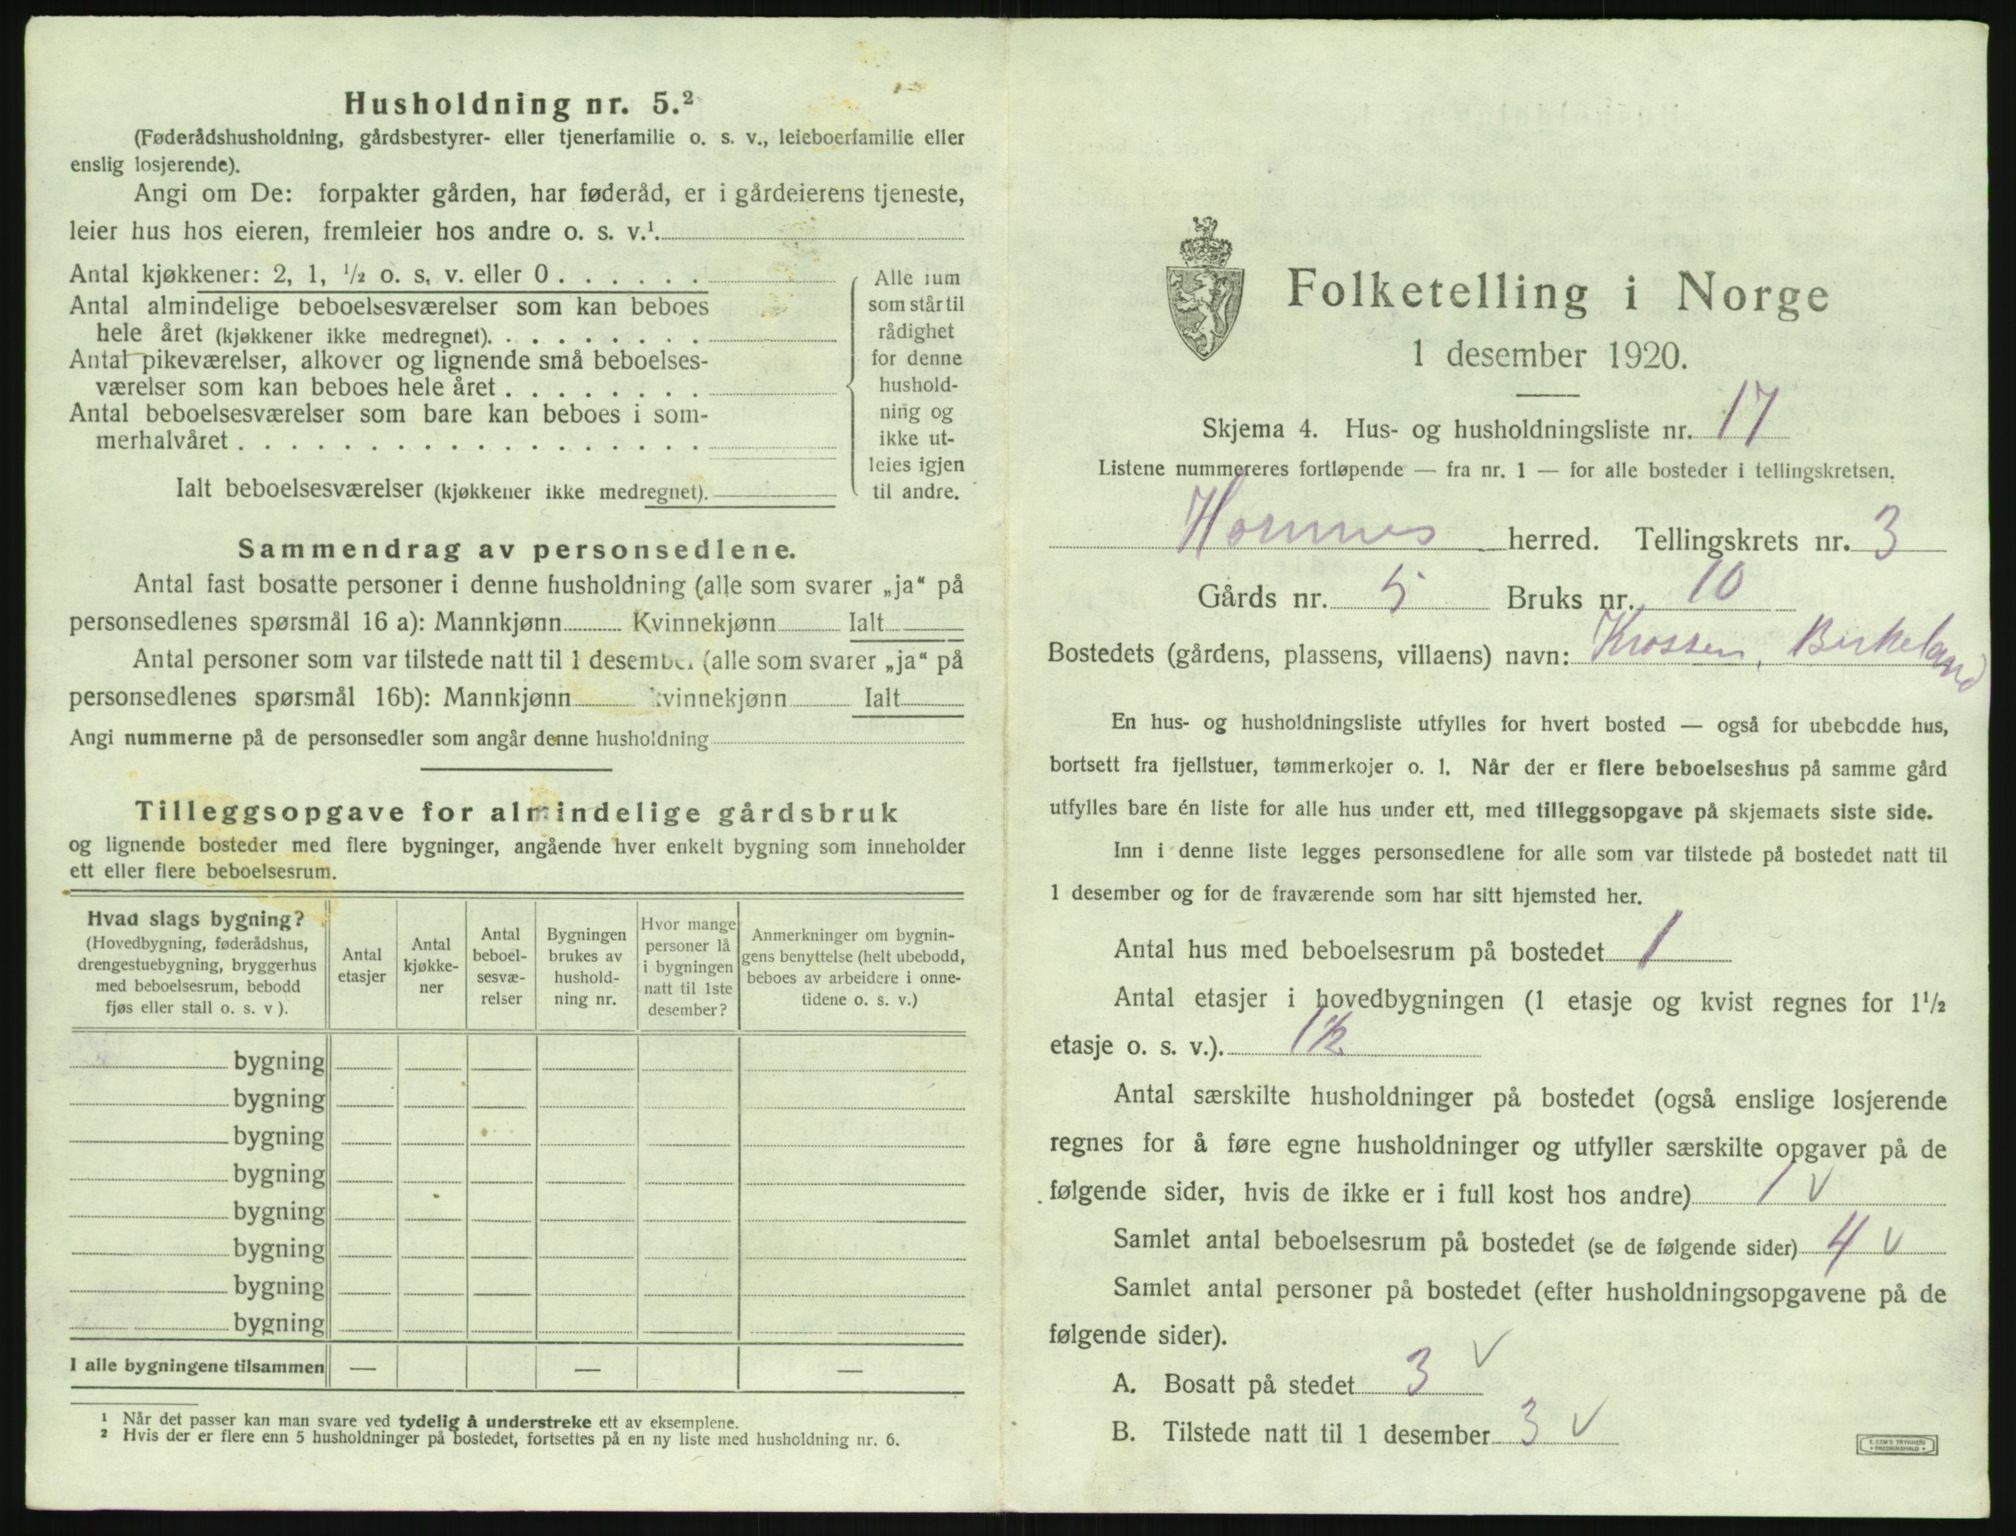 Husholdning nr. 5.²
(Føderådshusholdning, gårdsbestyrer- eller tjenerfamilie o. s. v., leieboerfamilie eller
enslig losjerende).
Angi om De: forpakter gården, har føderåd, er i gårdeierens tjeneste,
leier hus hos eieren, fremleier hos andre o. s. v.¹
Antal kjøkkener: 2, 1, ½ o. s. v. eller 0 . . . . . .
Antal almindelige beboelsesværelser som kan beboes
hele året (kjøkkener ikke medregnet). . . . . . . . .
Antal pikeværelser, alkover og lignende små beboelses-
værelser som kan beboes hele året . . . . . . . .
Antal beboelsesværelser som bare kan beboes i som-
merhalvåret . . . . . . . . . . . . . . . . . .
Ialt beboelsesværelser (kjøkkener ikke medregnet).
Alle rum
som står til
rådighet
for denne
hushold-
ning og
ikke ut-
leies igjen
til andre.
Sammendrag av personsedlene.
Antal fast bosatte personer i denne husholdning (alle som svarer „ja“ på
personsedlenes spørsmål 16 a): Mannkjønn Kvinnekjønn Ialt
Antal personer som var tilstede natt til 1 desember (alle som svarer „ja“ på
personsedlenes spørsmål 16b): Mannkjønn Kvinnekjønn Ialt
Angi nummerne på de personsedler som angår denne husholdning
Tilleggsopgave for almindelige gårdsbruk
og lignende bosteder med flere bygninger, angående hver enkelt bygning som inneholder
ett eller flere beboelsesrum.
Hvad slags bygning?
(Hovedbygning, føderådshus,
drengestuebygning, bryggerhus
med beboelsesrum, bebodd
fjøs eller stall o. s. v ).
Antal
etasjer
Antal
kjøkke-
ner
Antal
beboel-
sesvæ-
relser
Bygningen
brukes av
hushold-
ning nr.
Hvor mange
personer lå
i bygningen
natt til 1ste
desember?
Anmerkninger om bygnin-
gens benyttelse (helt ubebodd,
beboes av arbeidere i onne-
tidene o. s. v.)
bygning
bygning
bygning
bygning
bygning
bygning
bygning
bygning
I alle bygningene tilsammen — — —
¹ Når det passer kan man svare ved tydelig å understreke ett av eksemplene.
² Hvis der er flere enn 5 husholdninger på bostedet, fortsettes på en ny liste med husholdning nr. 6.
Folketelling i Norge
1 desember 1920.
Skjema 4. Hus- og husholdningsliste nr. 17
Listene nummereres fortløpende — fra nr. 1 — for alle bosteder i tellingskretsen.
Hornnes herred. Tellingskrets nr. 3
Gårds nr. 5 Bruks nr. 10
Bostedets (gårdens, plassens, villaens) navn: Krossen, Birkeland
En hus- og husholdningsliste utfylles for hvert bosted — også for ubebodde hus,
bortsett fra fjellstuer, tømmerkojer o. l. Når der er flere beboelseshus på samme gård
utfylles bare én liste for alle hus under ett, med tilleggsopgave på skjemaets siste side.
Inn i denne liste legges personsedlene for alle som var tilstede på bostedet natt til
1 desember og for de fraværende som har sitt hjemsted her.
Antal hus med beboelsesrum på bostedet 1
Antal etasjer i hovedbygningen (1 etasje og kvist regnes for 1½
etasje o. s. v.). 1½
Antal særskilte husholdninger på bostedet (også enslige losjerende
regnes for å føre egne husholdninger og utfyller særskilte opgaver på de
følgende sider, hvis de ikke er i full kost hos andre) 1 v
Samlet antal beboelsesrum på bostedet (se de følgende sider) 4 v
Samlet antal personer på bostedet (efter husholdningsopgavene på de
følgende sider).
A. Bosatt på stedet 3 v
B. Tilstede natt til 1 desember 3 v
E. SEM'S TRYKKERI
FREDRIKSHALD